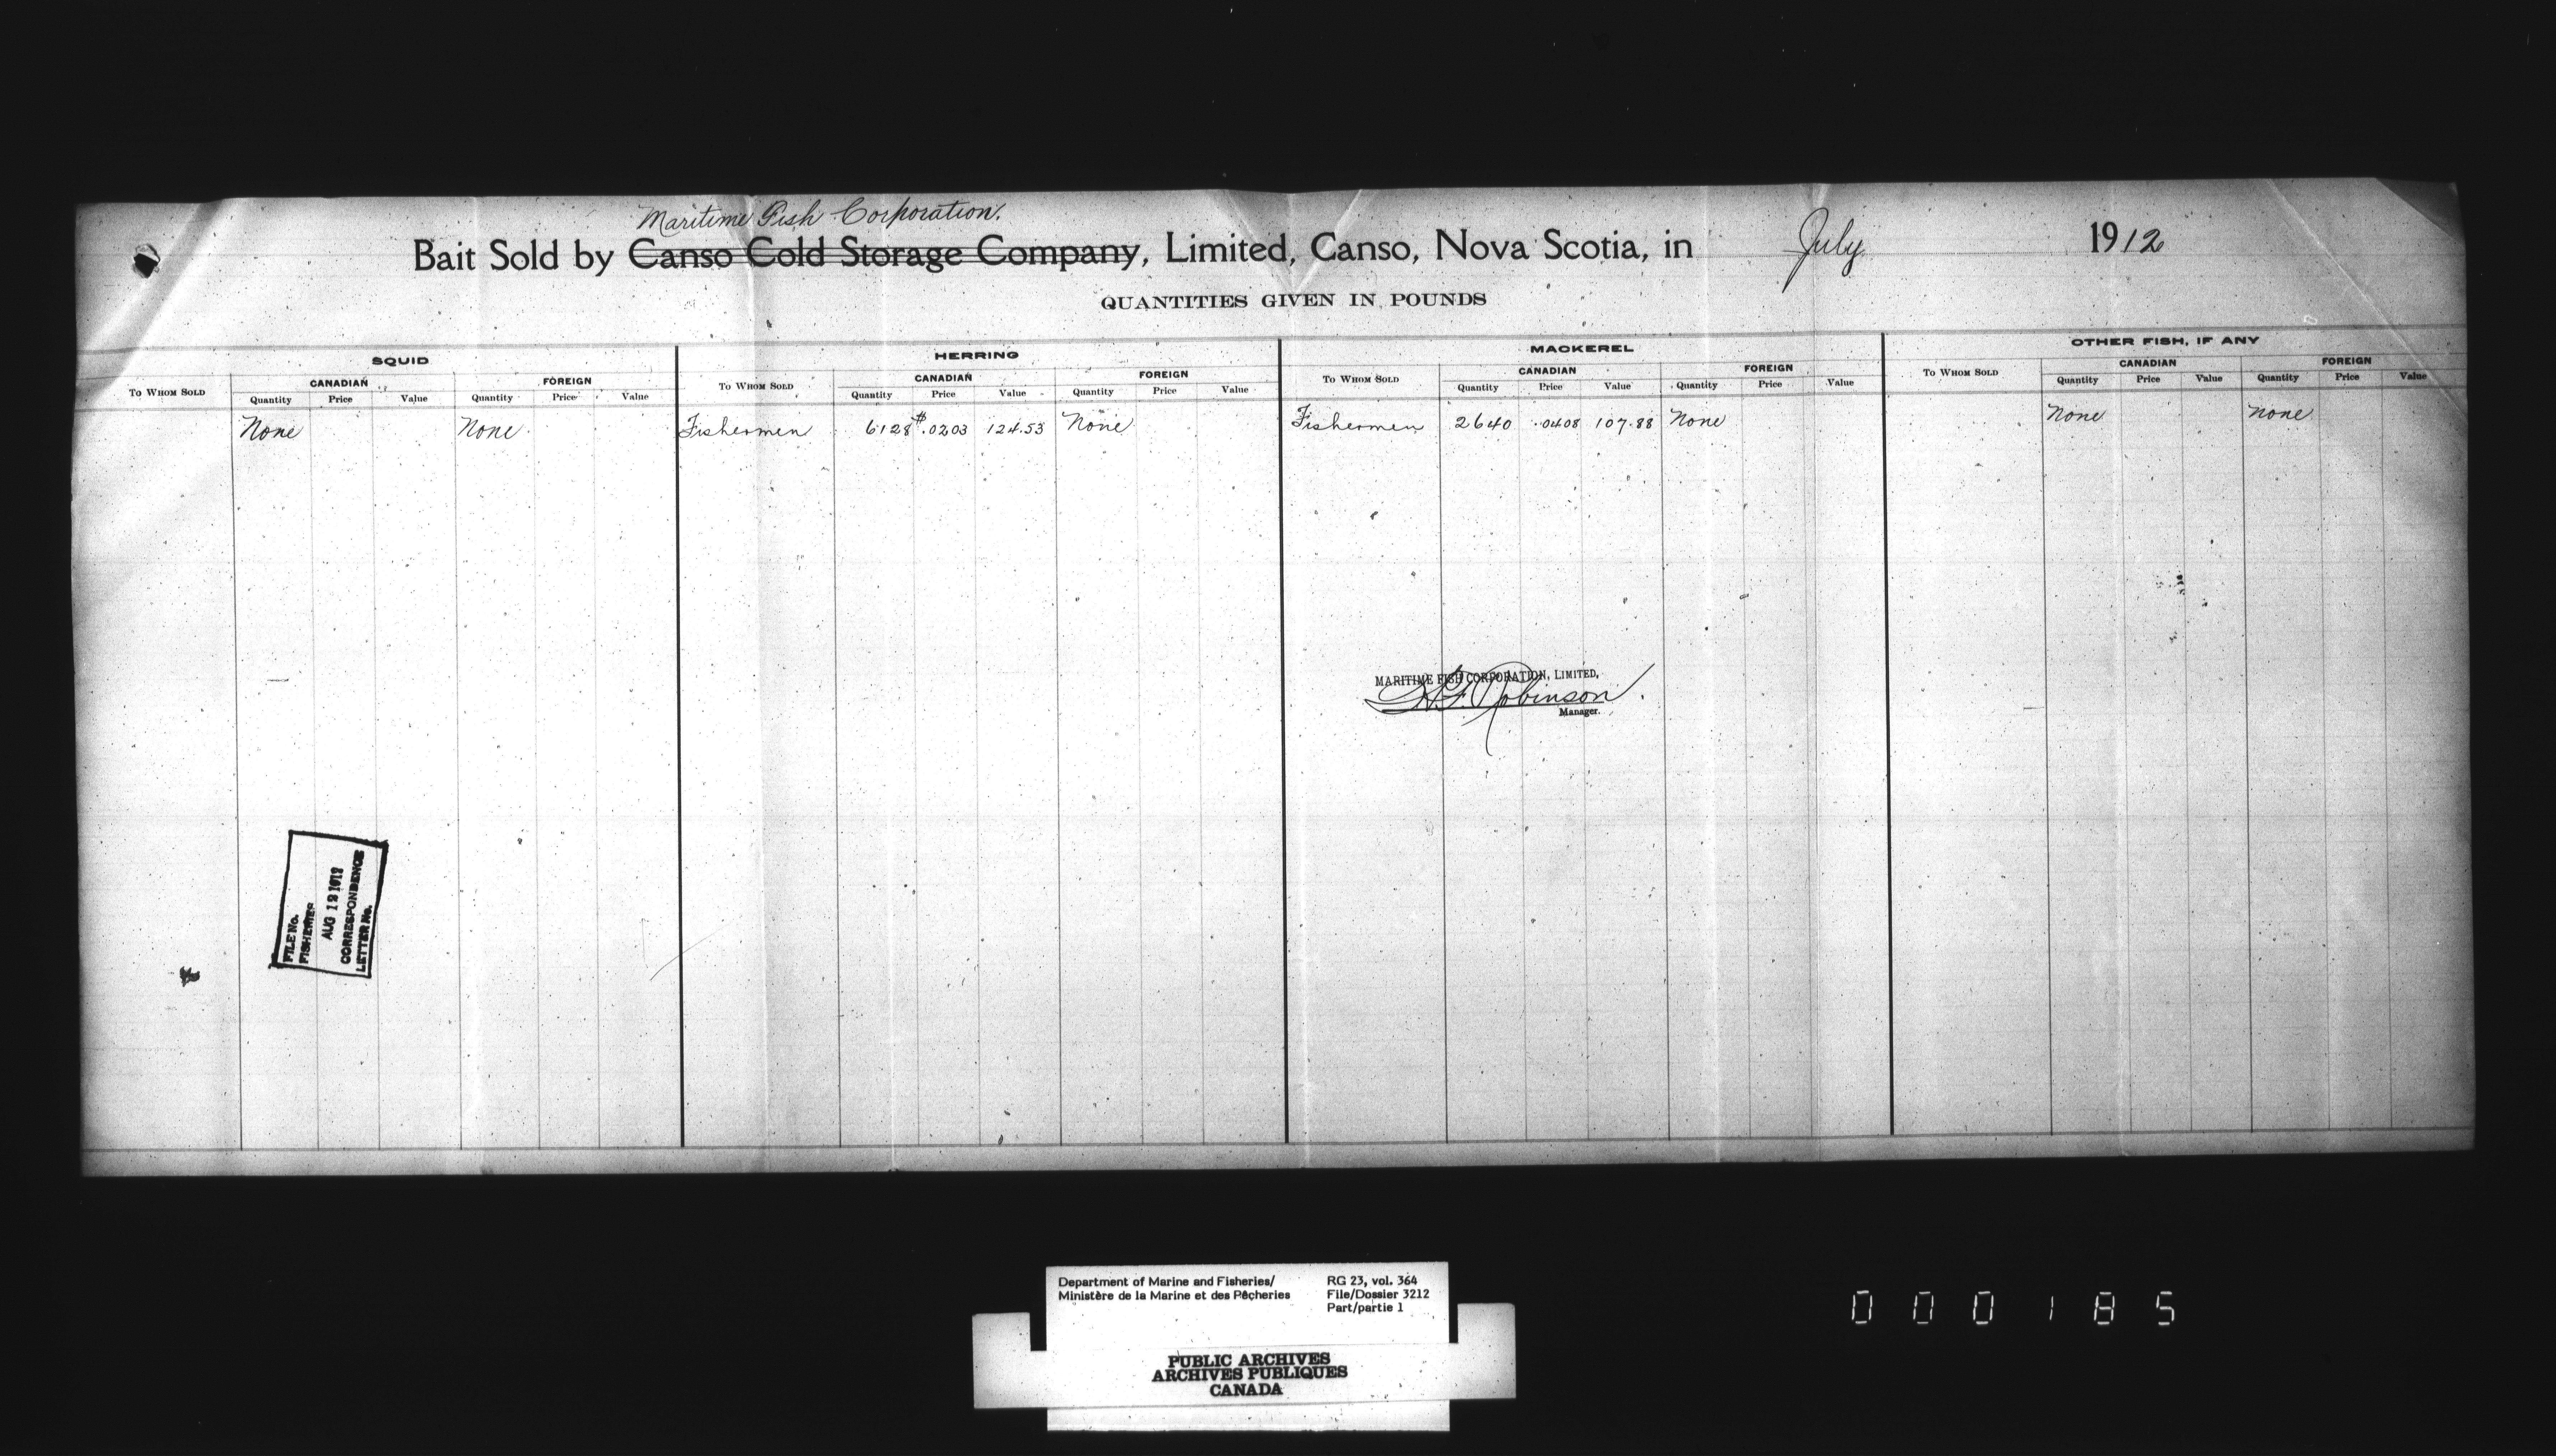 Maritime Fish Corporation.
Bait Sold by Canso Cold Storage Company, Limited, Canso, Nova Scotia, in July 1912
QUANTITIES GIVEN IN POUNDS
SQUID HERRING MACKEREL OTHER FISH, IF ANY
TO WHOM SOLD CANADIAN FOREIGN TO WHOM SOLD CANADIAN FOREIGN TO WHOM SOLD CANADIAN FOREIGN TO WHOM SOLD CANADIAN FOREIGN
Quantity Price Value Quantity Price Value Quantity Price Value Quantity Price Value Quantity Price Value Quantity Price Value Quantity Price Value Quantity Price Value
None None Fishermen 6128 $.0203 124.53 None Fishermen 2640 .0408 107.88 None None None
MARITIME FISH CORPORATION, LIMITED,
H.F. Robinson.
Manager.
FILE No.
FISHERIES
AUG 12 1912
CORRESPONDENCE
LETTER No.
Department of Marine and Fisheries/
Ministère de la Marine et des Pêcheries
RG 23, vol. 364
File/Dossier 3212
Part/partie 1
PUBLIC ARCHIVES
ARCHIVES PUBLIQUES
CANADA
000185